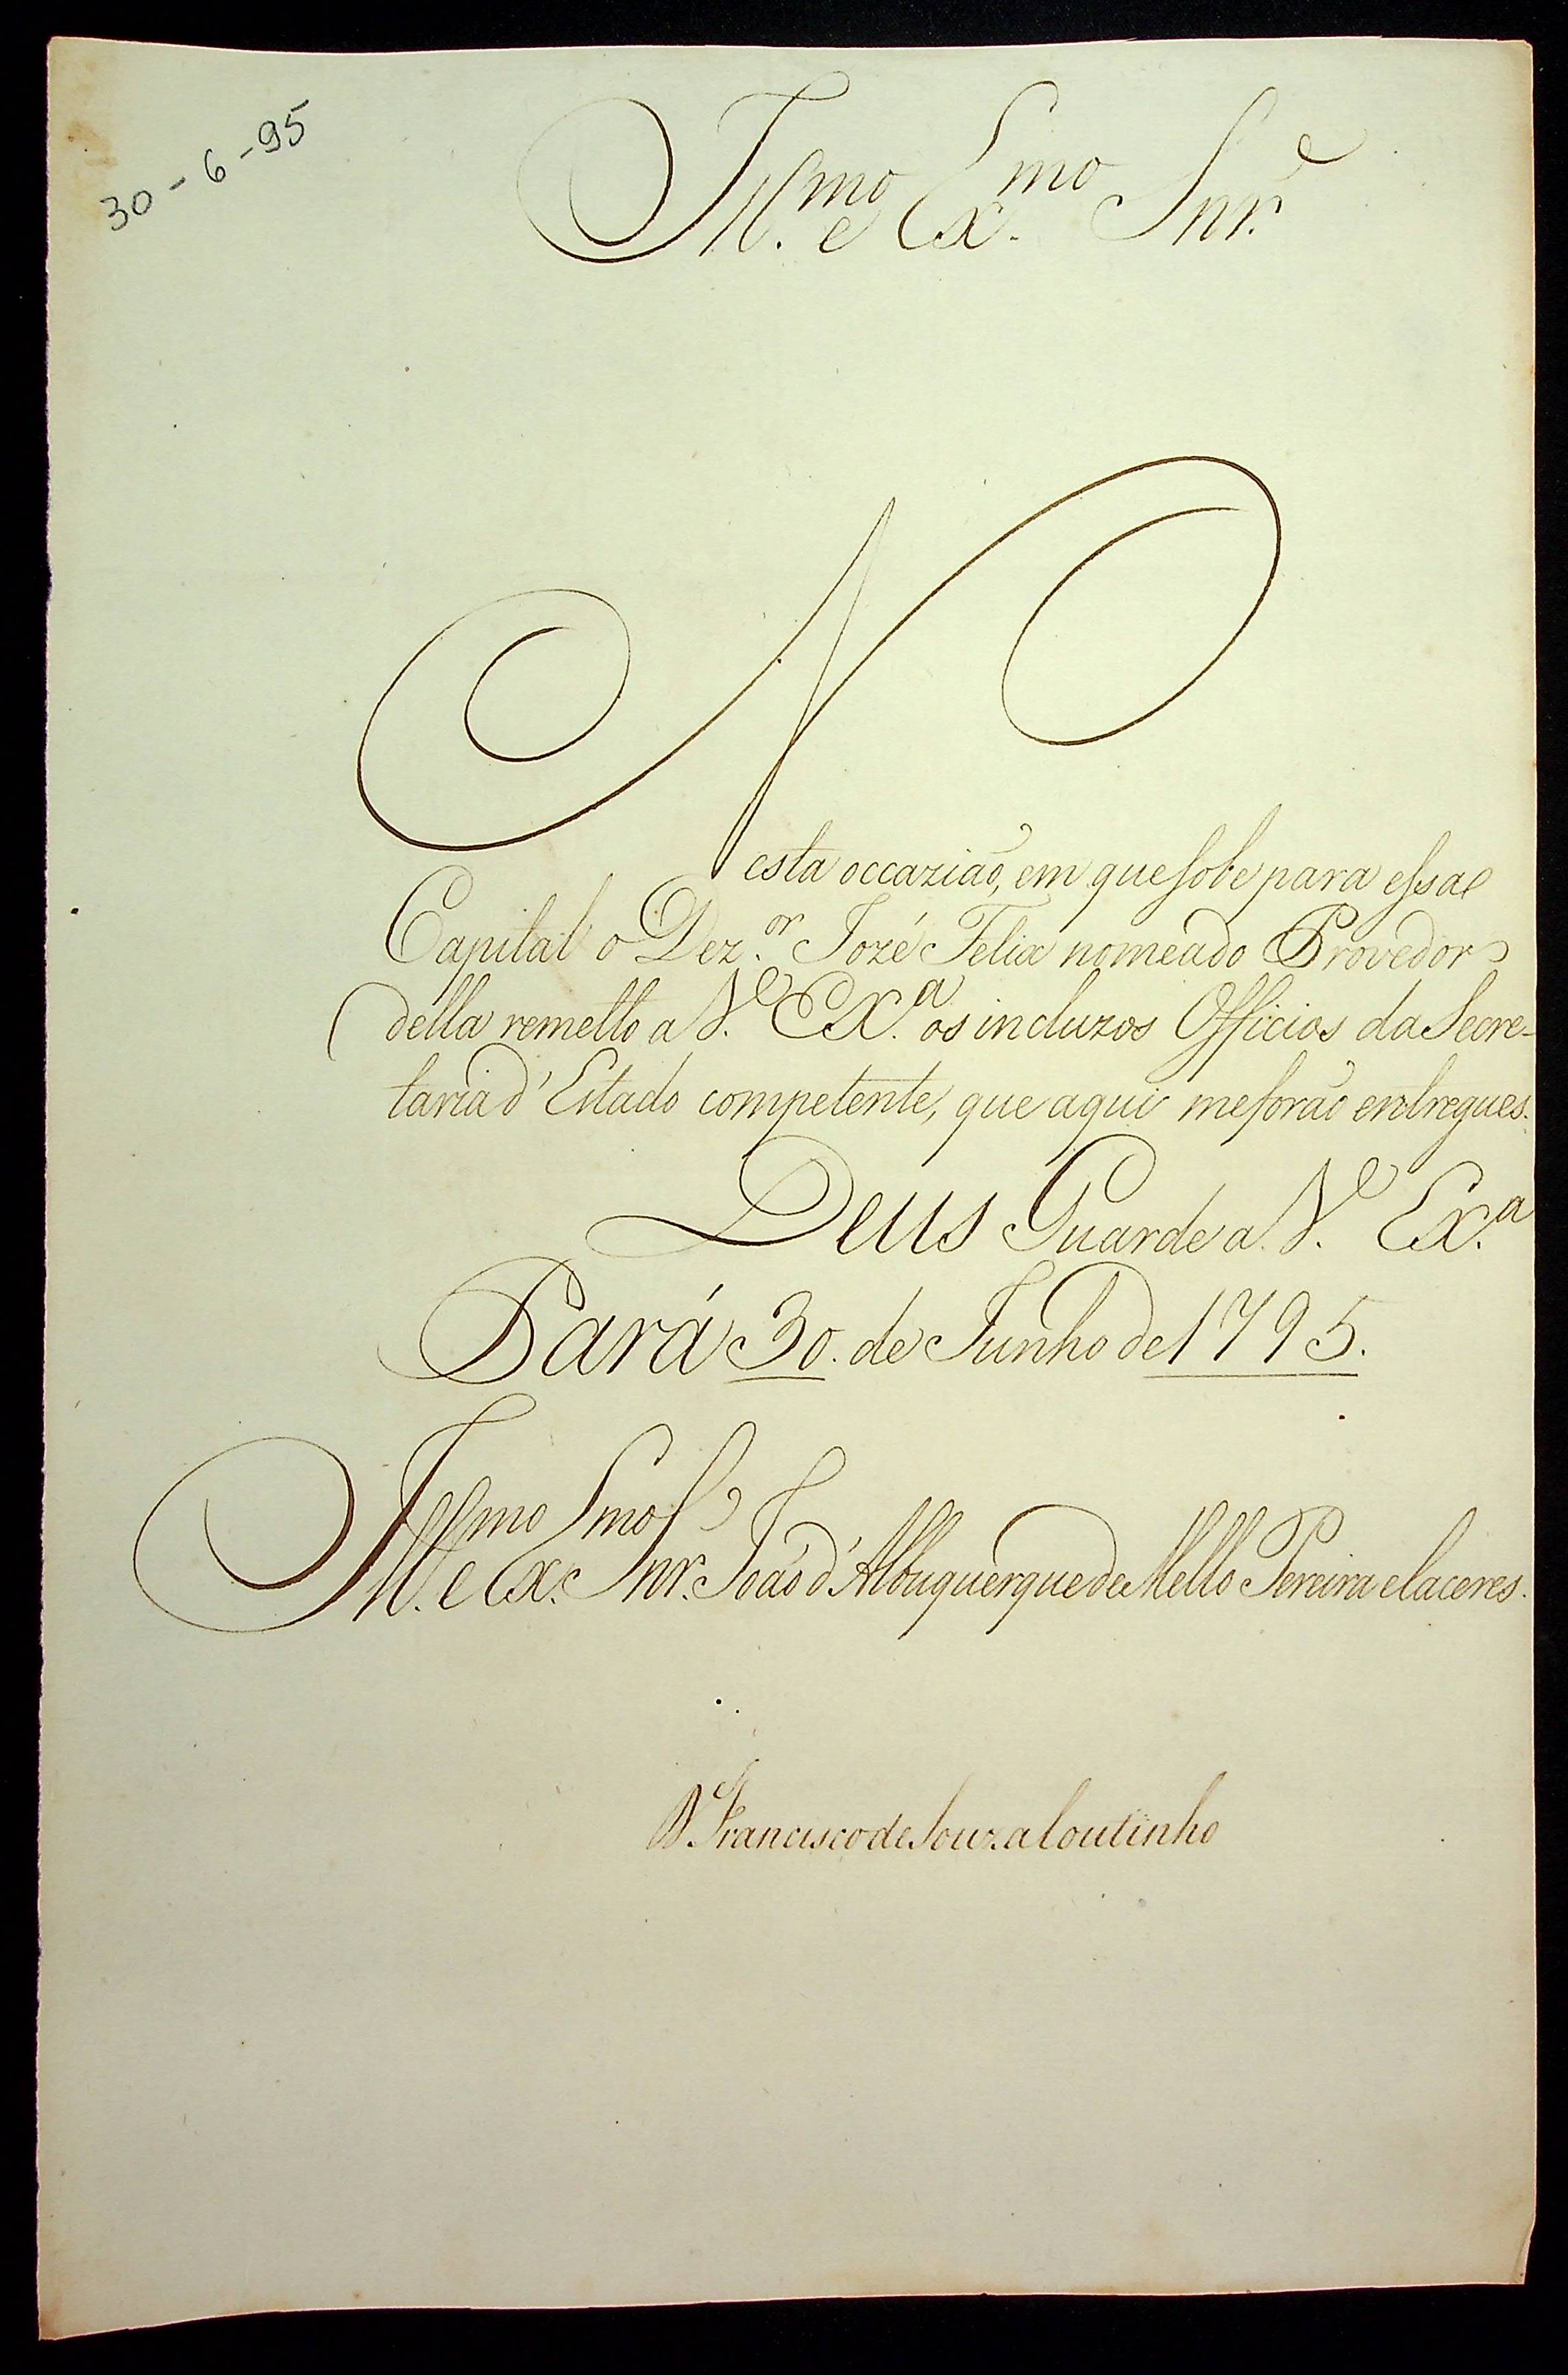 30-6-95
Ill.mo e Ex.mo Snr.
Nesta occazião, em que sobe para essa
Capital o Dez.or Jozé Felix nomeado Provedor
della remetto a V. Ex.a os incluzos Officios da Secre-
taria d'Estado competente, que aqui me forão entregues.
Deus Guarde a V. Ex.a
Pará 30. de Junho de 1795.
Ill.mo e Ex.mo Snr. João d'Albuquerque de Mello Pereira e Caceres.
D. Francisco de Souza Coutinho